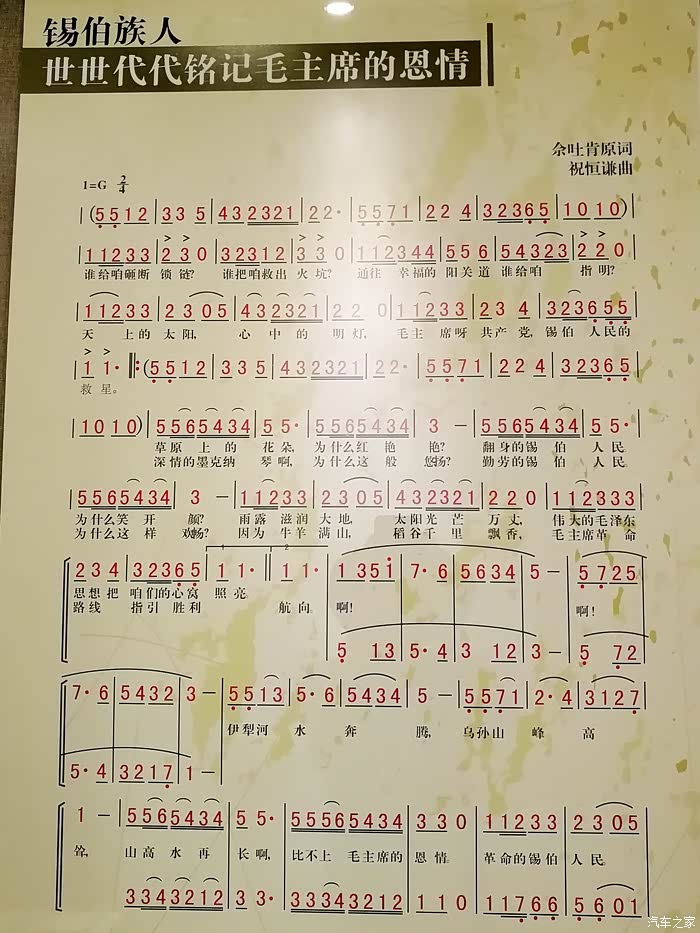 锡伯族人
世世代代铭记毛主席的恩情
佘吐肯原词
祝恒谦曲
1=G 2/4
(5 5 1 2 | 3 3 5 | 4 3 2 3 2 1 | 2 2· | 5 5 7 1 | 2 2 4 | 3 2 3 6 5 | 1 0 1 0)
1 1 2 3 3 | 2 3 0 | 3 2 3 1 2 | 3 3 0 | 1 1 2 3 4 4 | 5 5 6 | 5 4 3 2 3 | 2 2 0
谁给咱砸断 锁链? 谁把咱救出 火坑? 通往 幸福的 阳关道 谁给咱 指明?
1 1 2 3 3 | 2 3 0 5 | 4 3 2 3 2 1 | 2 2 0 | 1 1 2 3 3 | 2 3 4 | 3 2 3 6 5 5
天 上的 太阳, 心 中的 明灯, 毛主 席呀 共产 党, 锡伯 人民的
1 1· 𝄆 (5 5 1 2 | 3 3 5 | 4 3 2 3 2 1 | 2 2· | 5 5 7 1 | 2 2 4 | 3 2 3 6 5
救星。
1 0 1 0) | 5 5 6 5 4 3 4 | 5 5· | 5 5 6 5 4 3 4 | 3 - | 5 5 6 5 4 3 4 | 5 5·
草原 上的 花朵, 为什么红 艳 艳? 翻身的锡 伯 人民
深情的墨克纳 琴啊, 为什么这 般 悠扬? 勤劳的锡 伯 人民
5 5 6 5 4 3 4 | 3 - | 1 1 2 3 3 | 2 3 0 5 | 4 3 2 3 2 1 | 2 2 0 | 1 1 2 3 3 3
为什么笑 开 颜? 雨露 滋润 大地, 太阳光 芒 万丈, 伟大的毛泽东
为什么这 样 欢畅? 因为 牛羊 满山, 稻谷千 里 飘香, 毛主席革 命
2 3 4 | 3 2 3 6 5 | 1. 1 1· 𝄇 2. 1 1· | 1 3 5 1 | 7· 6 | 5 6 3 4 | 5 - | 5 7 2 5
思想把 咱们的心窝 照亮
路线 指引 胜利 航向 啊! 啊!
5 1 3 | 5· 4 | 3 1 2 | 3 - | 5 7 2
7· 6 | 5 4 3 2 | 3 - | 5 5 1 3 | 5· 6 | 5 4 3 4 | 5 - | 5 5 7 1 | 2· 4 | 3 1 2 7
伊犁河 水 奔 腾, 乌孙山 峰 高
5· 4 | 3 2 1 7 | 1 -
1 - | 5 5 6 5 4 3 4 | 5 5· | 5 5 5 6 5 4 3 4 | 3 3 0 | 1 1 2 3 3 | 2 3 0 5
耸, 山高 水 再 长啊, 比不上 毛主席的 恩情。 革命的锡伯 人民。
3 3 4 3 2 1 2 | 3 3· | 3 3 3 4 3 2 1 2 | 1 1 0 | 1 1 7 6 6 | 5 6 0 1
汽车之家